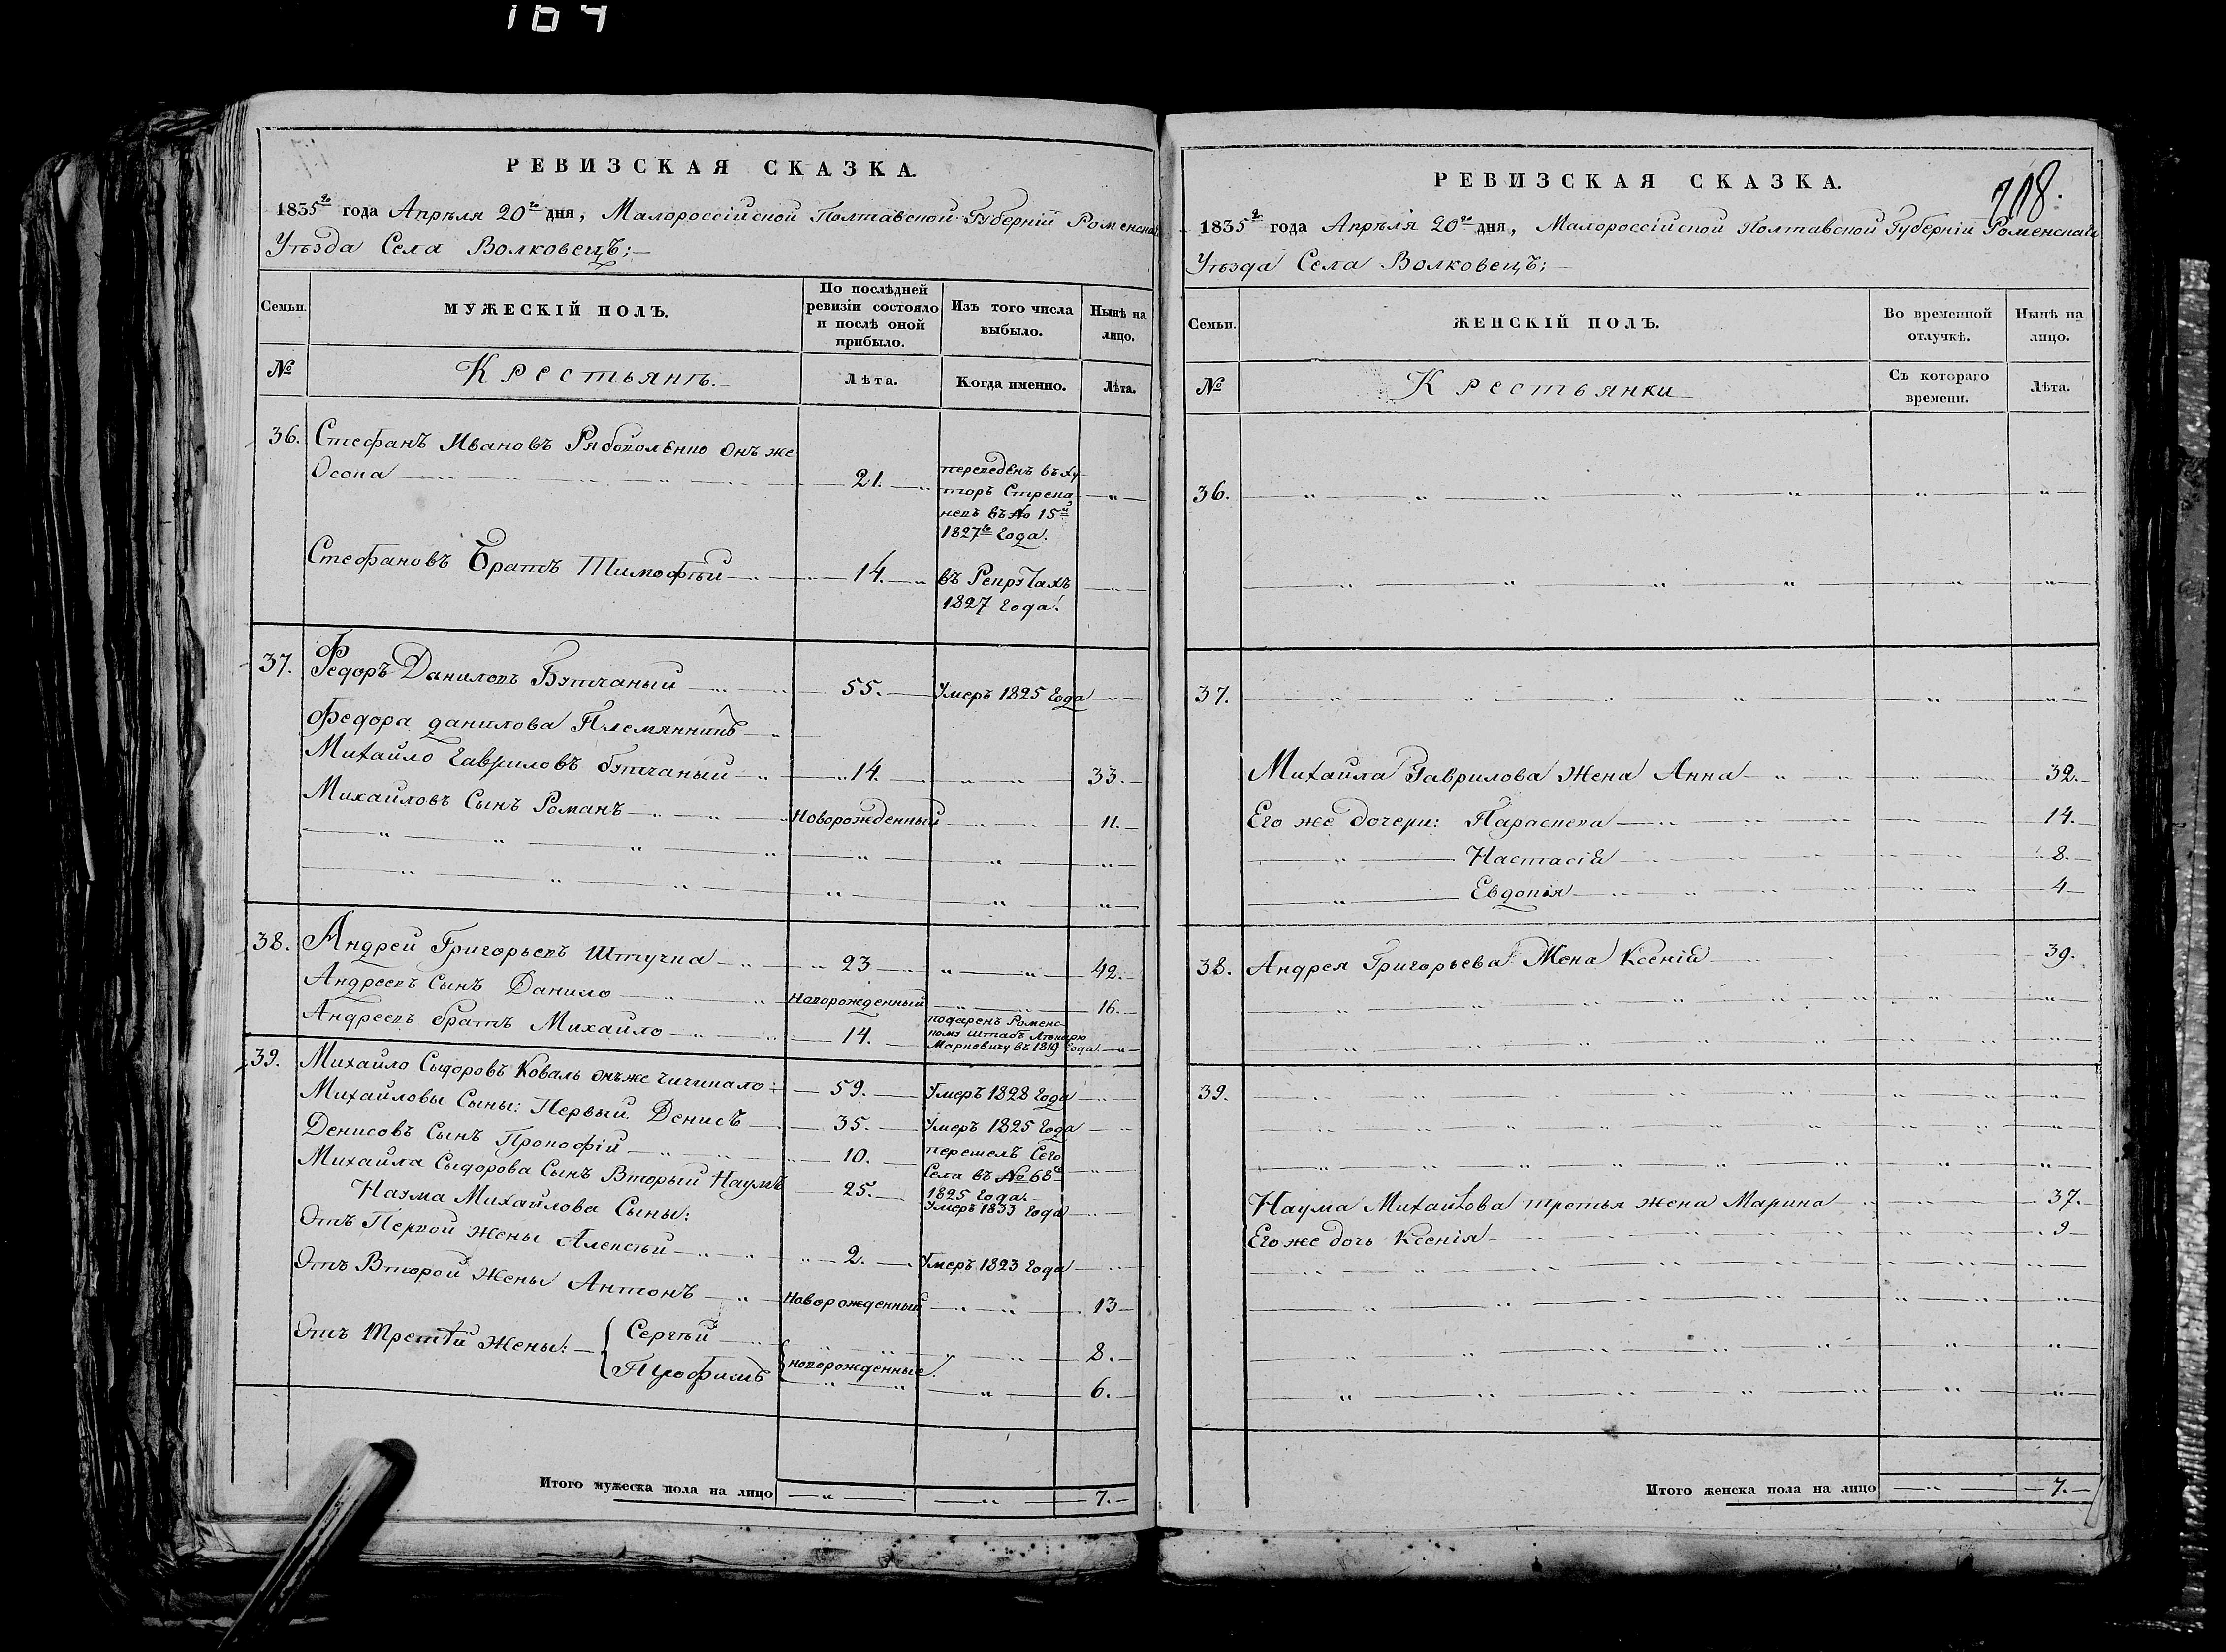 164
РЕВИЗСКАЯ СКАЗКА.
1835го года Апрѣля 20го дня, Малороссійской Полтавской Губерніи Роменскаго
Уѣзда Села Волковецъ;
Семьи.
МУЖЕСКІЙ ПОЛЪ.
По послѣдней ревизіи состояло и послѣ оной прибыло.
Изъ того числа выбыло.
Нынѣ на лицо.
№
Крестьянъ.
Лѣта.
Когда именно.
Лѣта.
36. Стефанъ Ивановъ Рябоволенко Онъ же
Осопа 21. переведенъ въ Ху-
торъ
въ № 15й
1827го Года.
Стефановъ Братъ Тимофѣй 14. въ Рекрутахъ
1827 Года.
37. Федоръ Даниловъ 55. Умеръ 1825 Года
Федора Данилова Племянникъ
Михайло Гавриловъ 14. 33.
Михайловъ Сынъ Романъ Новорожденный 11.
38. Андрей Григорьевъ Штучка 23 42.
Андреевъ Сынъ Данило Новорожденный 16.
Андреевъ братъ Михайло 14. подаренъ Роменс-
кому Штабъ Лѣкарю
Маркевичу въ 1819 Года
39. Михайло Сыдоровъ Коваль онъ же Чичикало: 59. Умеръ 1828 Года
Михайловы Сыны: Первый Денисъ 35. Умеръ 1825 Года
Денисовъ Сынъ Прокофій 10. перешелъ Сего
Села въ № 68й
1825 Года.
Михайла Сыдорова Сынъ Вторый Наумъ 25. Умеръ 1833 Года
Наума Михайлова Сыны:
Отъ Первой Жены Алексѣй 2. Умеръ 1823 Года
Отъ Второй Жены Антонъ Новорожденный 13
Отъ Третьей Жены: Сергѣй новорожденные 8.
Трофимъ 6.
Итого мужеска пола на лицо 7.
РЕВИЗСКАЯ СКАЗКА.
718.
1835го года Апрѣля 20го дня, Малороссійской Полтавской Губерніи Роменскаго
Уѣзда Села Волковецъ;
Семьи.
ЖЕНСКІЙ ПОЛЪ.
Во временной отлучкѣ.
Нынѣ на лицо.
№
Крестьянки
Съ котораго времени.
Лѣта.
36.
37.
Михайла Гаврилова Жена Анна 32.
Его же дочери: Параскева 14.
Настасія 8.
Евдокія 4
38. Андрея Григорьева Жена Ксенія 39.
39.
Наума Михайлова третья жена Марина 37.
Его же дочь Ксенія 9
Итого женска пола на лицо 7.